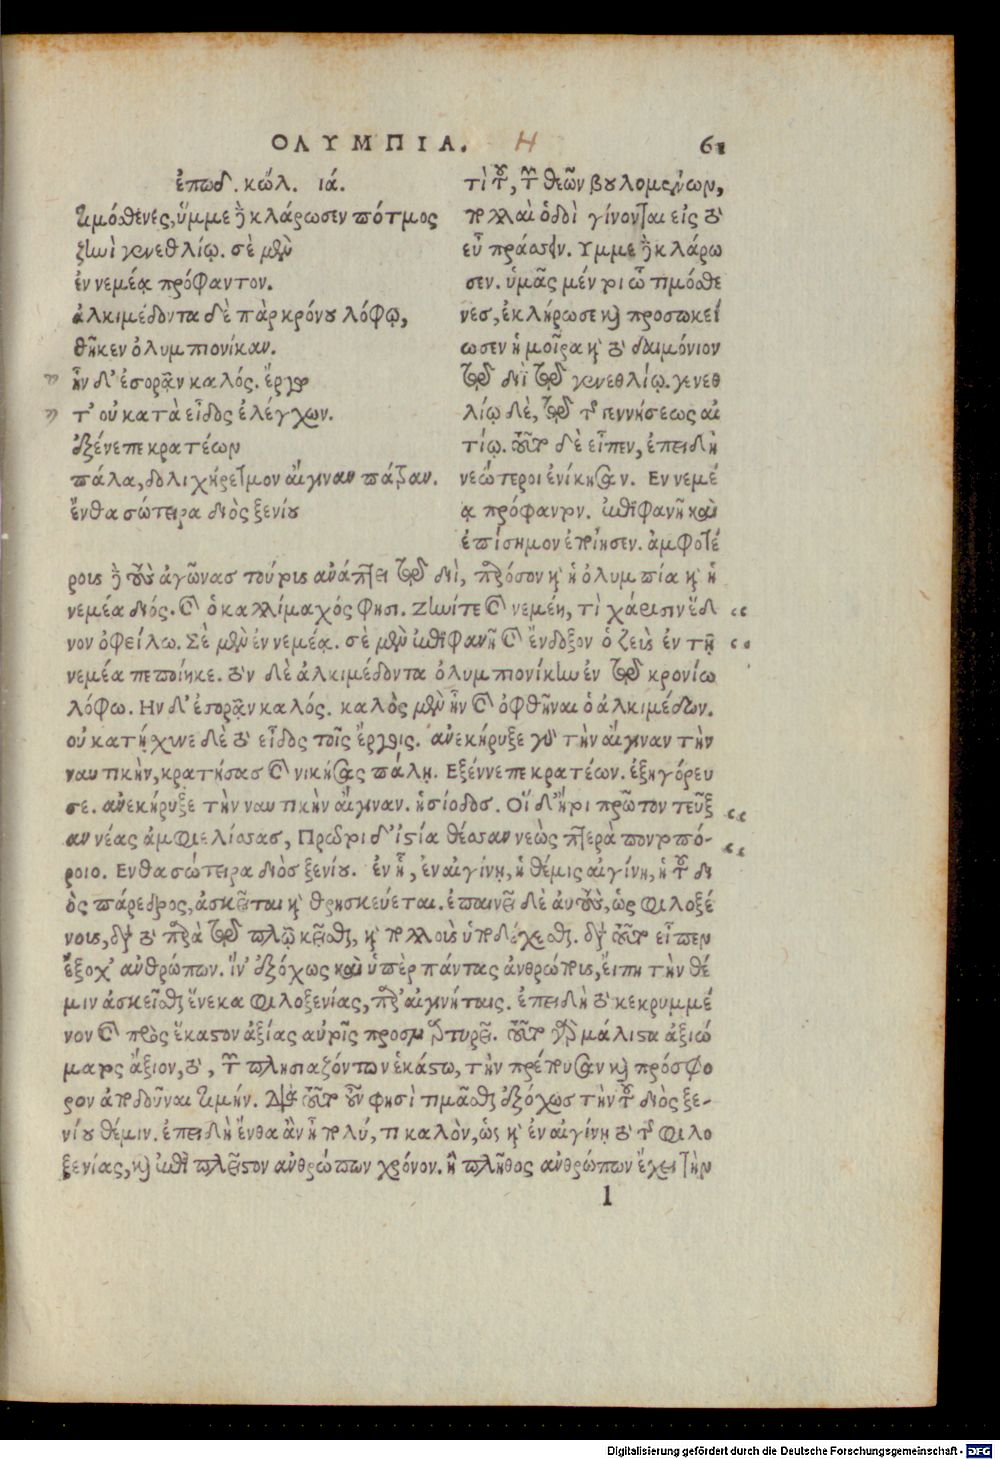 ΟΛΥΜΠΙΑ. Η 61
ἐπωδ. κώλ. ιά.
τιμόσθενες, ὔμμε δ' ἐκλάρωσεν πότμος
ζηνὶ γενεθλίῳ. σὲ μὲν
ἐν νεμέᾳ πρόφαντον.
ἀλκιμέδοντα δὲ πὰρ κρόνου λόφῳ,
θῆκεν ὀλυμπιονίκαν.
ἦν δ' ἐσορᾷν καλός. ἔργῳ
τ' οὐ κατὰ εἶδος ἐλέγχων.
ἐξένεπε κρατέων
πάλᾳ, δολιχήρετμον αἴγιναν πάτραν.
ἔνθα σώτειρα διὸς ξενίου
τὶ τοῦ, τῶν θεῶν βουλομένων,
πολλαὶ ὁδοὶ γίνονται εἰς τὸ
εὖ πράσσειν. Υμμε δ' ἐκλάρω
σεν. ὑμᾶς μέντοι ὦ τιμόσθε
νες, ἐκλήρωσε καὶ προσωκεί
ωσεν ἡ μοῖρα καὶ τὸ δαιμόνιον
τῷ διῒ τῷ γενεθλίῳ. γενεθ
λίῳ δὲ, τῷ τῆς γεννήσεως αἰ
τίῳ. τοῦτο δὲ εἶπεν, ἐπειδὴ
νεώτεροι ἐνίκησαν. Εν νεμέ
ᾳ πρόφαντον. ἐπιφανῆ καὶ
ἐπίσημον ἐποίησεν. ἀμφοτέ
ροις δὲ τοὺς ἀγῶνας τούτοις ἀνάπτει τῷ διῒ, παρόσον καὶ ἡ ὀλυμπία καὶ ἡ
νεμέα διός. καὶ ὁ καλλίμαχός φησι. Ζηνί τε καὶ νεμέῃ, τὶ χάρισιν ἕδ
νον ὀφείλω. Σὲ μὲν ἐν νεμέᾳ. σὲ μὲν ἐπιφανῆ καὶ ἔνδοξον ὁ ζεὺς ἐν τῇ
νεμέα πεποίηκε. τὸν δὲ ἀλκιμέδοντα ὀλυμπιονίκην ἐν τῷ κρονίω
λόφω. Ην δ' ἐσορᾷν καλός. καλὸς μὲν ἦν καὶ ὀφθῆναι ὁ ἀλκιμέδων.
οὐ κατῄχυνε δὲ τὸ εἶδος τοῖς ἔργοις. ἀνεκήρυξε γὰρ τὴν αἴγιναν τὴν
ναυτικὴν, κρατήσας καὶ νικήσας πάλῃ. Εξέννεπε κρατέων. ἐξηγόρευ
σε. ἀνεκήρυξε τὴν ναυτικὴν αἴγιναν. ἡσίοδος. Οἵ δ' ἤτοι πρῶτον τεῦξ
αν νέας ἀμφιελίσσας, Πρῶτοι δ' ἱστία θέσαν νεὼς πτερὰ ποντοπό-
ροιο. Ενθα σώτειρα διὸς ξενίου. ἐν ᾗ, ἐν αἰγίνῃ, ἡ θέμις αἰγίνη, ἡ τοῦ δι
ὸς πάρεδρος, ἀσκεῖται καὶ θρησκεύεται. ἐπαινεῖ δὲ αὐτοὺς, ὡς φιλοξέ
νους, διὰ τὸ παρὰ τῷ πλῷ κεῖσθαι, καὶ πολλοὺς ὑποδέχεσθαι. διὰ τοῦτο εἶπεν
ἔξοχ' ἀνθρώπων. ἵν' ἐξόχως καὶ ὑπὲρ πάντας ἀνθρώποις, εἴπῃ τὴν θέ
μιν ἀσκεῖσθαι ἕνεκα φιλοξενίας, παρ' αἰγινήταις. ἐπειδὴ τὸ κεκρυμμέ
νον καὶ πρὸς ἕκαστον ἀξίας αὐτοῖς προσμαρτυρεῖ. τοῦτο γὰρ μάλιστα ἀξιώ
ματος ἄξιον, τὸ, τῶν πλησιαζόντων ἑκάστω, τὴν πρέπουσαν καὶ πρόσφο
ρον ἀποδοῦναι τιμήν. Διὰ τοῦτο οὖν φησὶ τιμᾶσθαι ἐξόχως τὴν τοῦ διὸς ξε-
νίου θέμιν. ἐπειδὴ ἔνθα ἂν ᾖ πολύ, τι καλὸν, ὡς καὶ ἐν αἰγίνῃ τὸ τῆς φιλο
ξενίας, καὶ ἐπὶ πλεῖστον ἀνθρώπων χρόνον. ἢ πλῆθος ἀνθρώπων ἔχει τὴν
l
Digitalisierung gefördert durch die Deutsche Forschungsgemeinschaft - DFG